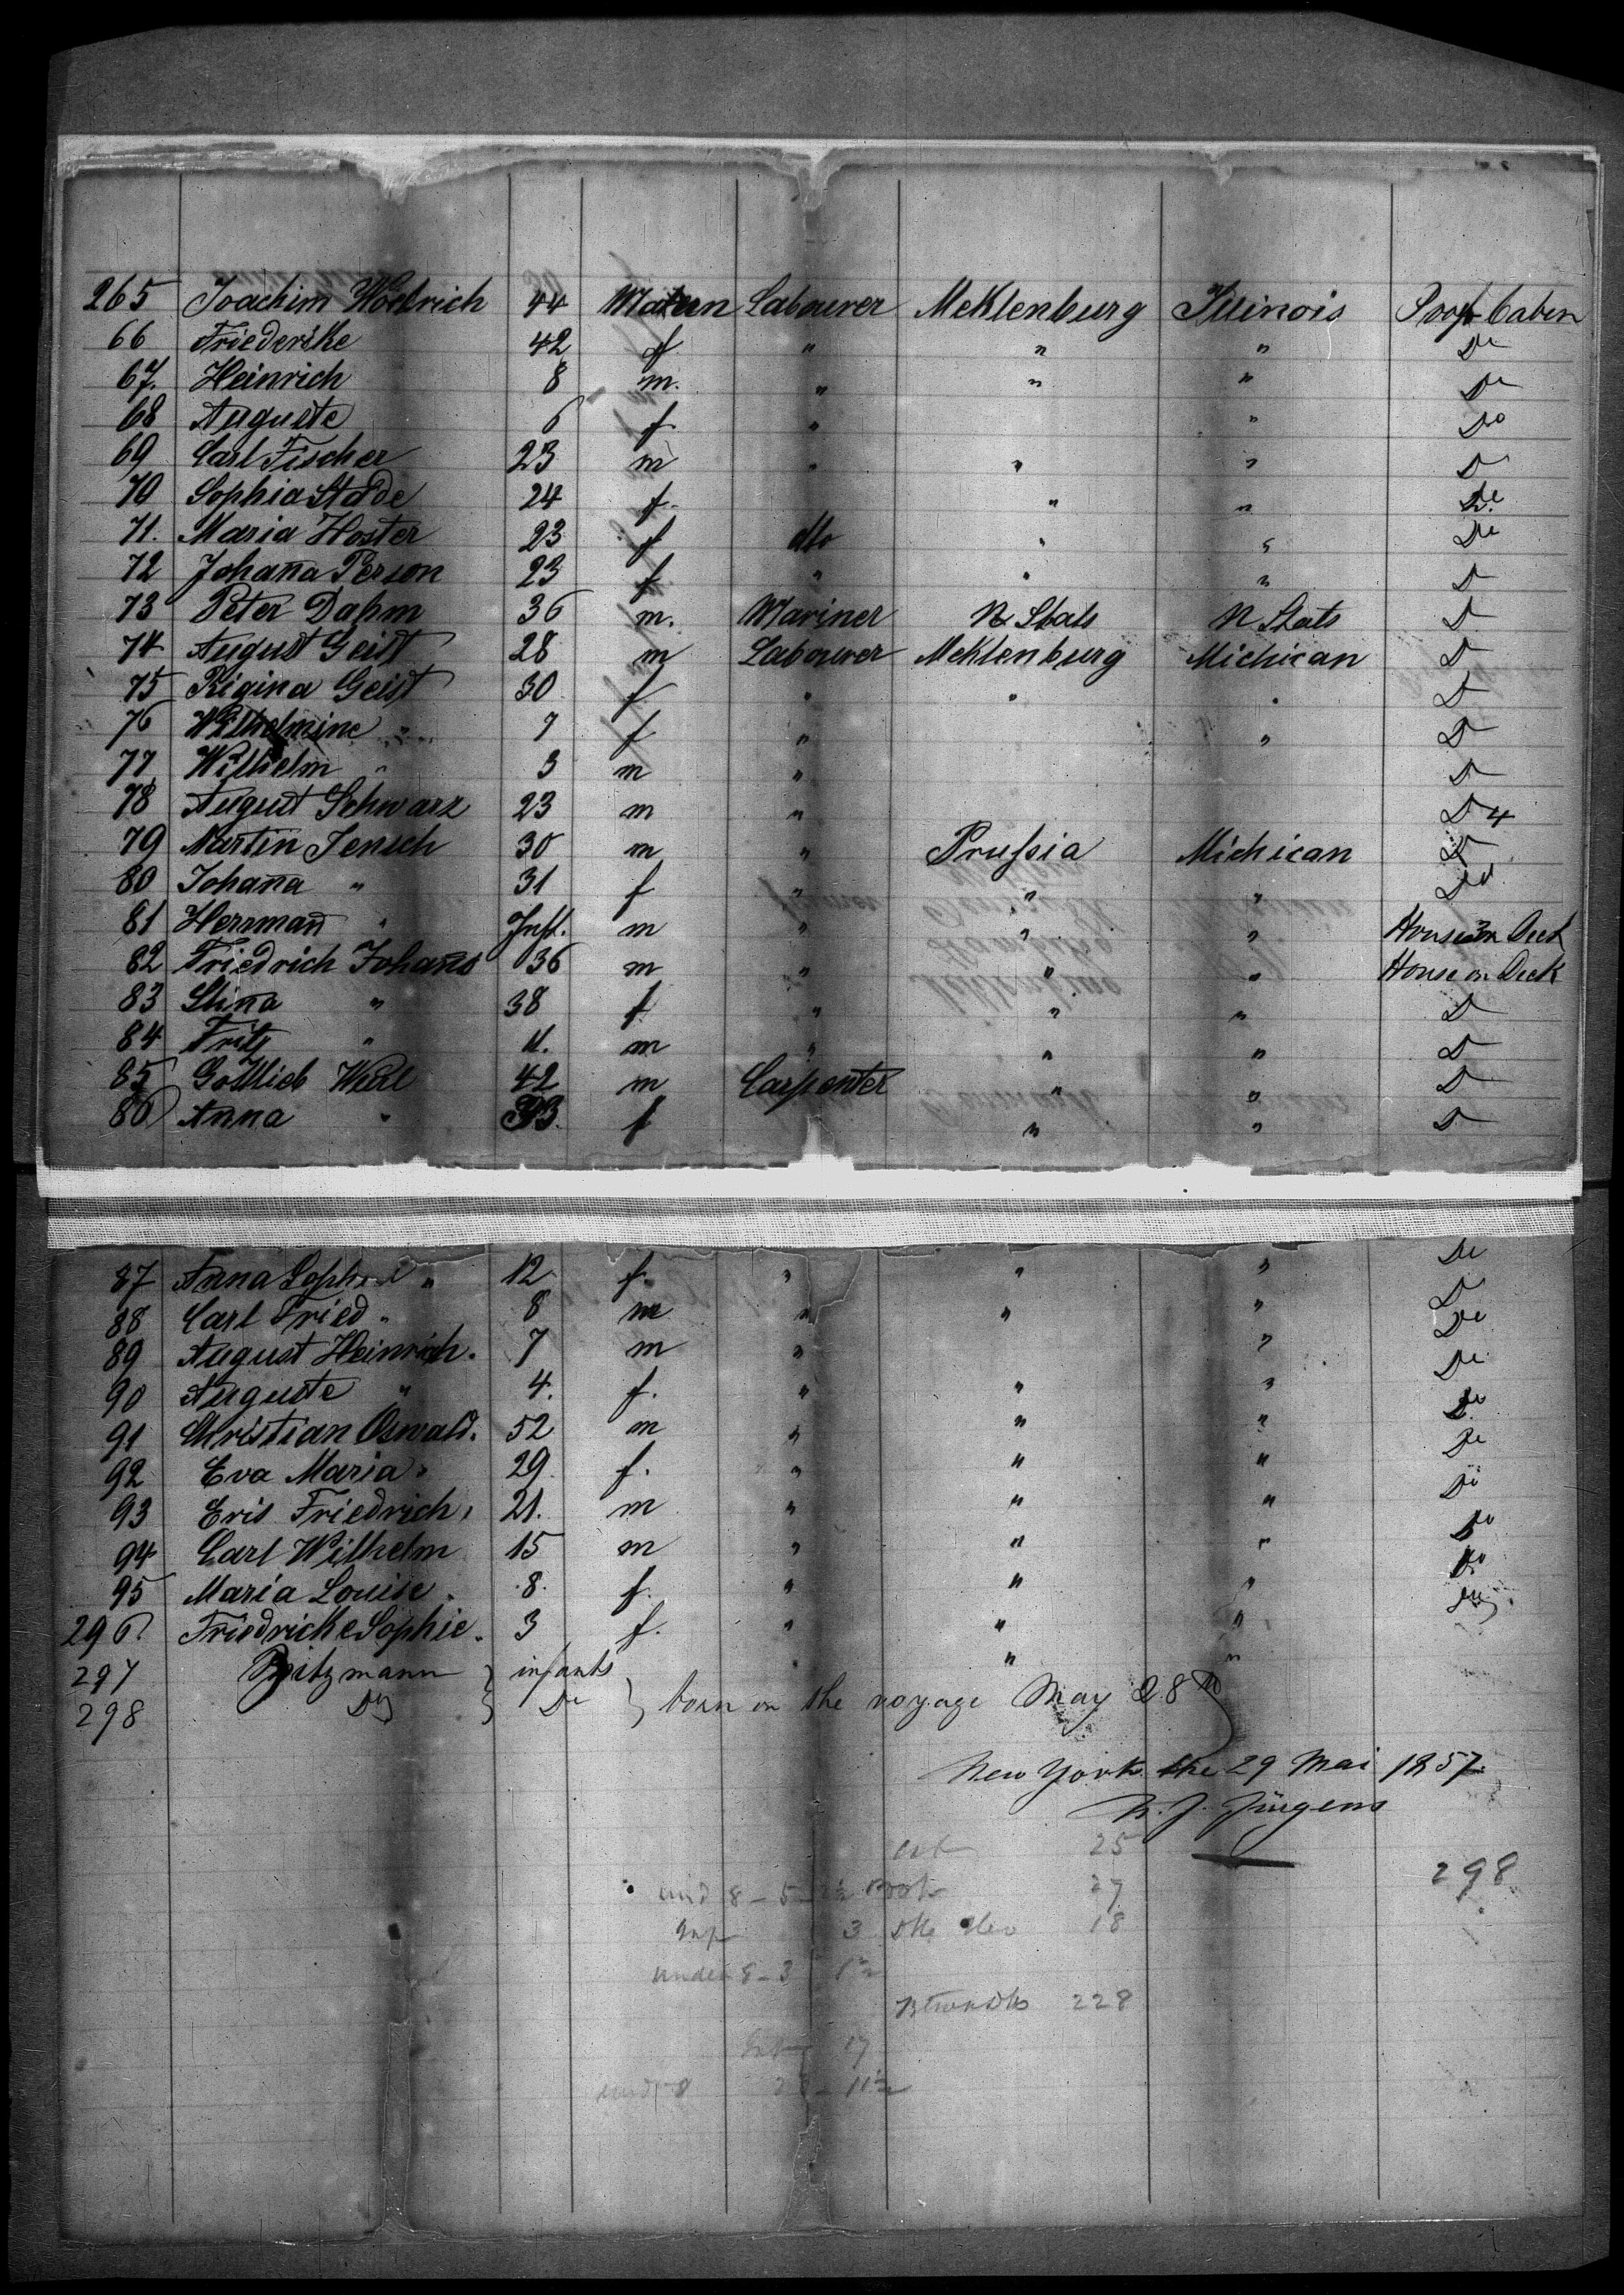 265 Joachim Wöllrich 44 Mann Labourer Meklenburg Illinois Poop Caben
66 Friederike 42 f " " " Do
67. Heinrich 8 m. " " " Do
68 Auguste 6 f " " Do
69 Carl Fischer 23 m " " " D
70 Sophia Stade 24 f. " " Do
71. Maria Hoster 23 f dto " " Do
72 Johana Person 23 f " " " D
73 Peter Dahm 36 m. Mariner N Stats N Stats D
74 August Geist 28 m Labourer Meklenburg Michican D
75 Rigina Geist 30 f " " " D
76 Wilhelmine " 7 f " " D
77 Wilhelm " 3 m " D
78 August Schwarz 23 m " D 4
79 Martin Jensch 30 m " Prussia Michican D
80 Johana " 31 f " " " Do
81 Herrman " Inft. m " " " House on Deck
82 Friedrich Johans 36 m " " " House on Deck
83 Stina " 38 f " " " D
84 Fritz " 11. m " " " D
85 Gottlieb 42 m Carpenter " " D
86 Anna " 33. f " " D
87 Anna Sophie " 12 f. " " " Do
88 Carl Fried " 8 m " " " D
89 August Heinrich " 7 m " " Do
90 Auguste " 4. f. " " " Do
91 Christian Oswald. 52 m " " " Do
92 Eva Maria " 29. f. " " " Do
93 Eris Friedrich " 21. m " " " Do
94 Carl Wilhelm 15 m " " " Do
95 Maria Louise " 8. f. " " " Do
296. Friedricke Sophie " 3 f. " " " Do
297 Ritzmann } infants " " "
298 Do } Do } born on the voyage May 28th
New York the 29 Mai 1857
Jürgens
25
und 8 - 5 - 27
Inf 3 18
298
under 8 - 3 1½
228
17
und 8 23 - 11½